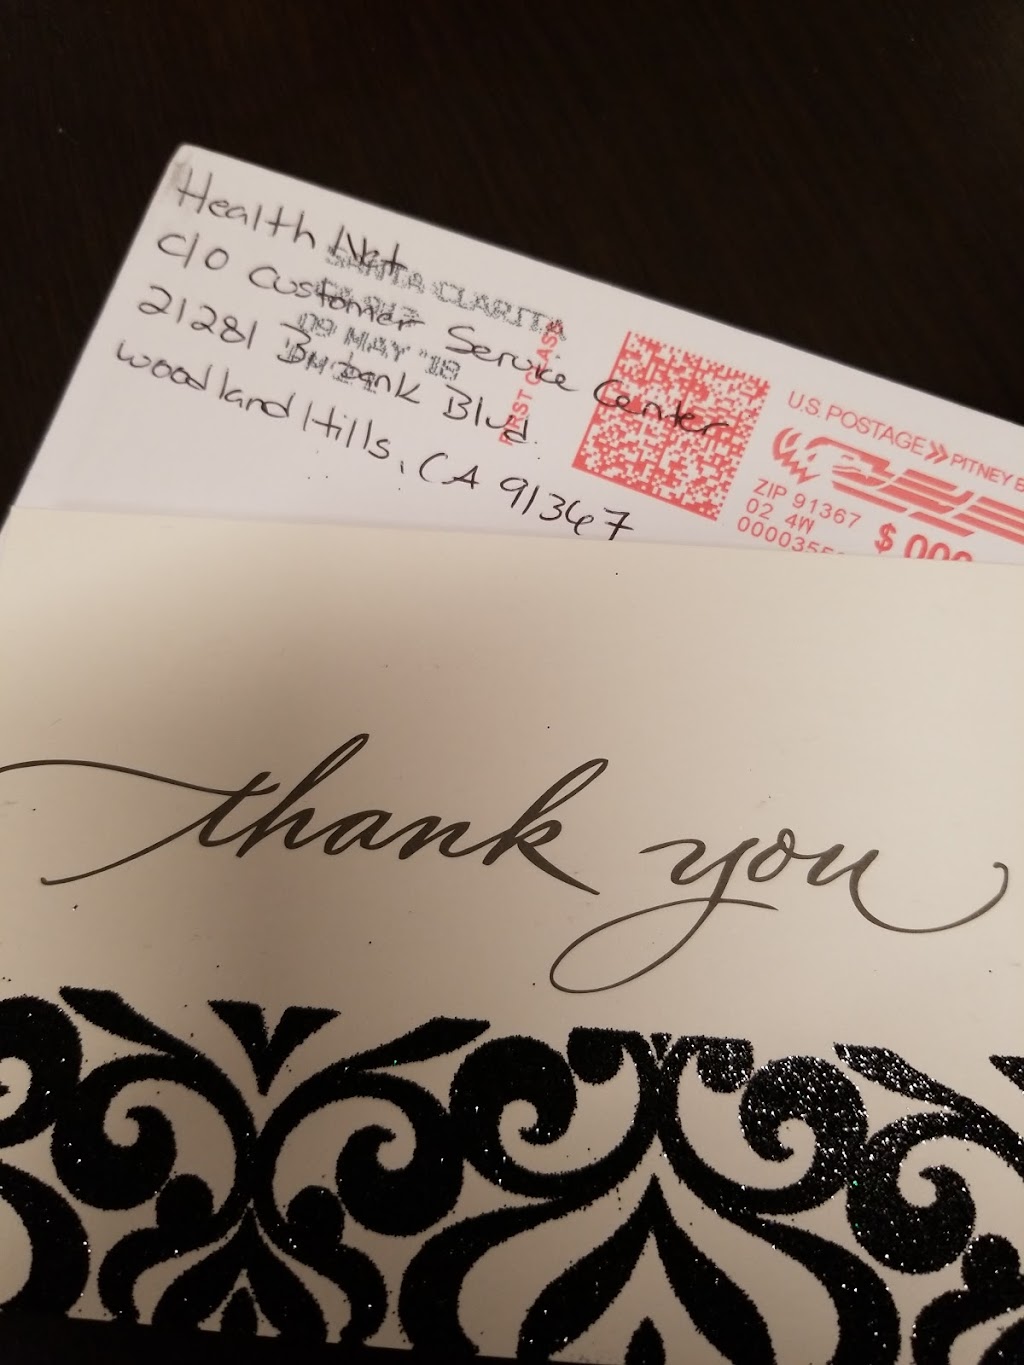 Health Net
C/O Customer Service Center
21281 Burbank Blvd.
Woodland Hills, CA 91367
SANTA CLARITA
09 MAY '18
FIRST CLASS
U.S. POSTAGE >> PITNEY
ZIP 91367
02 4W
$ 000
thank you